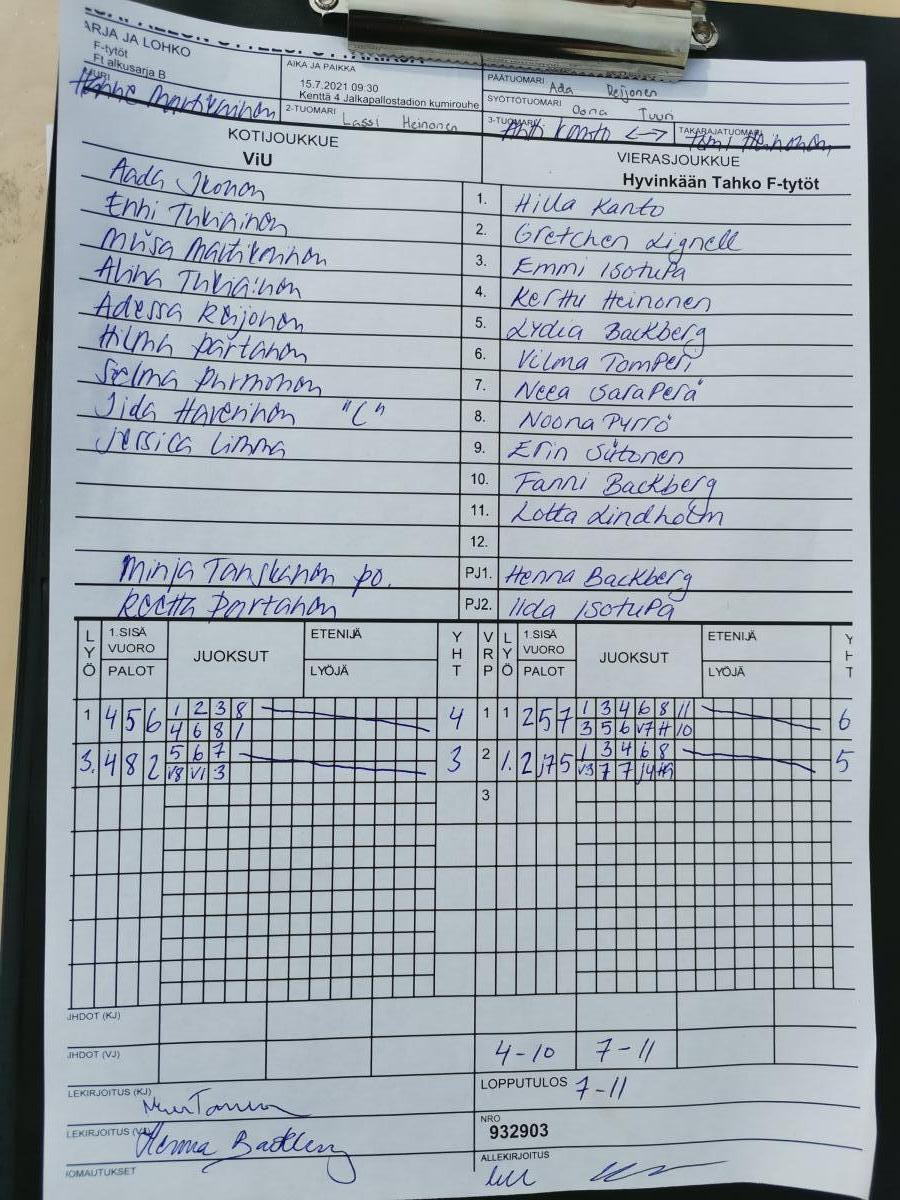 ARJA JA LOHKO
F-tytöt
Ft alkusarja B
AIKA JA PAIKKA
15.7.2021 09:30
Kenttä 4 Jalkapallostadion kumirouhe
2-TUOMARI Lassi Heinonen
PÄÄTUOMARI Ada Reijonen
SYÖTTÖTUOMARI Oona Tuuri
3-TUOMARI Antti Kanto <-> TAKARAJATUOMARI Tomi Heinonen
KOTIJOUKKUE
ViU
VIERASJOUKKUE
Hyvinkään Tahko F-tytöt
Aada Ikonen 1. Hilla Kanto
Enni Tukiainen 2. Gretchen Lignell
Miisa Martikainen 3. Emmi Isotupa
Alina Tukiainen 4. Kerttu Heinonen
Adessa Reijonen 5. Lydia Backberg
Hilma Partanen 6. Vilma Tomperi
Selma Purmonen 7. Neea Saraperä
Iida Haverinen "C" 8. Noona Pyrrö
Jessica Limma 9. Erin Sutonen
10. Fanni Backberg
11. Lotta Lindholm
12.
Minja Tanskanen po. PJ1. Henna Backberg
Reetta Partanen PJ2. Iida Isotupa
LYÖ 1.SISÄ VUORO PALOT JUOKSUT ETENIJÄ LYÖJÄ YHT VRP LYÖ 1.SISÄ VUORO PALOT JUOKSUT ETENIJÄ LYÖJÄ YHT
1 4 5 6 1 2 3 8 4 1 1 2 5 7 1 3 4 6 8 11 6
4 6 8 1 3 5 6 v7 H 10
3. 4 8 2 5 6 7 3 2 1. 2 J7 5 1 3 4 6 8 5
v8 v1 3 v3 7 7 J4 H9
3
JHDOT (KJ)
JHDOT (VJ) 4-10 7-11
LEKIRJOITUS (KJ)
LOPPUTULOS 7-11
LEKIRJOITUS (VJ) Henna Backberg
NRO
932903
IOMAUTUKSET
ALLEKIRJOITUS